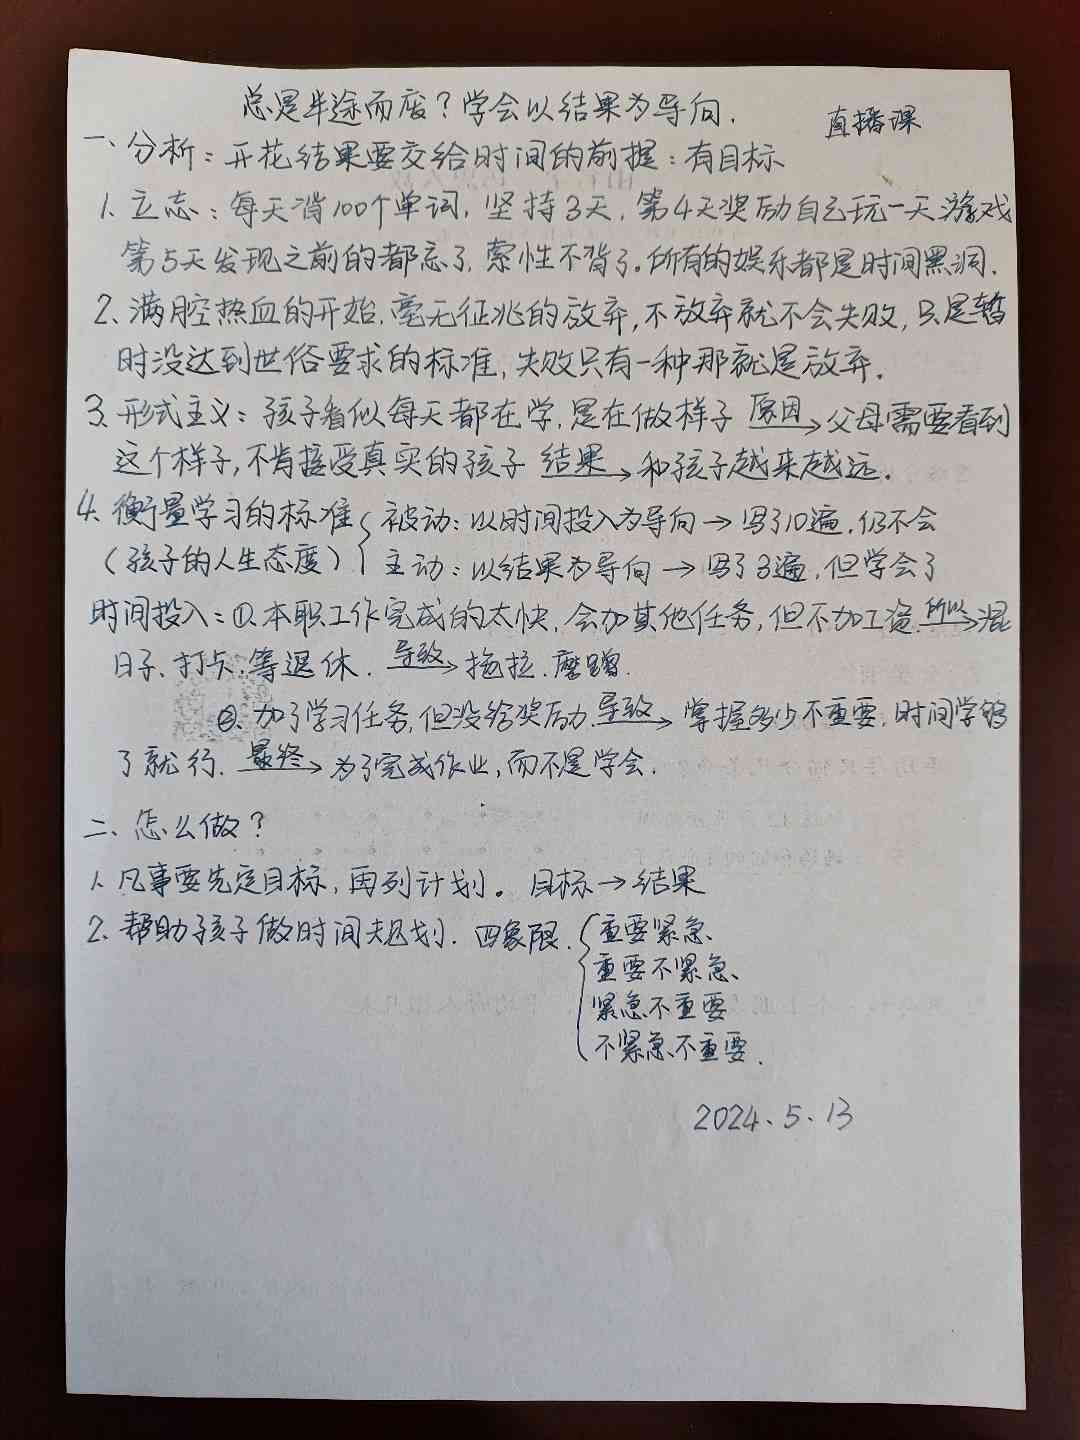 总是半途而废?学会以结果为导向.
直播课
一、分析:开花结果要交给时间的前提:有目标
1、立志:每天背100个单词,坚持3天,第4天奖励自己玩一天游戏
第5天发现之前的都忘了,索性不背了。所有的娱乐都是时间黑洞.
2、满腔热血的开始,毫无征兆的放弃,不放弃就不会失败,只是暂
时没达到世俗要求的标准,失败只有一种那就是放弃.
3、形式主义:孩子看似每天都在学,是在做样子 原因→父母需要看到
这个样子,不肯接受真实的孩子 结果→和孩子越来越远.
4、衡量学习的标准{被动:以时间投入为导向→写了10遍,仍不会
(孩子的人生态度){主动:以结果为导向→写了3遍,但学会了
时间投入:①、本职工作完成的太快,会加其他任务,但不加工资.所以→混
日子、打卡、等退休.导致→拖拉、磨蹭.
②、加了学习任务,但没给奖励.导致→掌握多少不重要,时间学够
了就行.最终→为了完成作业,而不是学会.
二、怎么做?
1、凡事要先定目标,再列计划。目标→结果
2、帮助孩子做时间规划.四象限.{重要紧急、
重要不紧急、
紧急不重要
不紧急、不重要.
2024、5、13